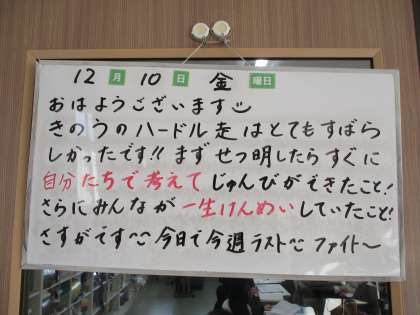 12月10日 金曜日
おはようございます
きのうのハードル走はとてもすばら
しかったです!! まずせつ明したらすぐに
自分たちで考えてじゅんびができたこと!
さらにみんなが一生けんめいしていたこと!
さすがです^^ 今日で今週ラスト^^ ファイト〜